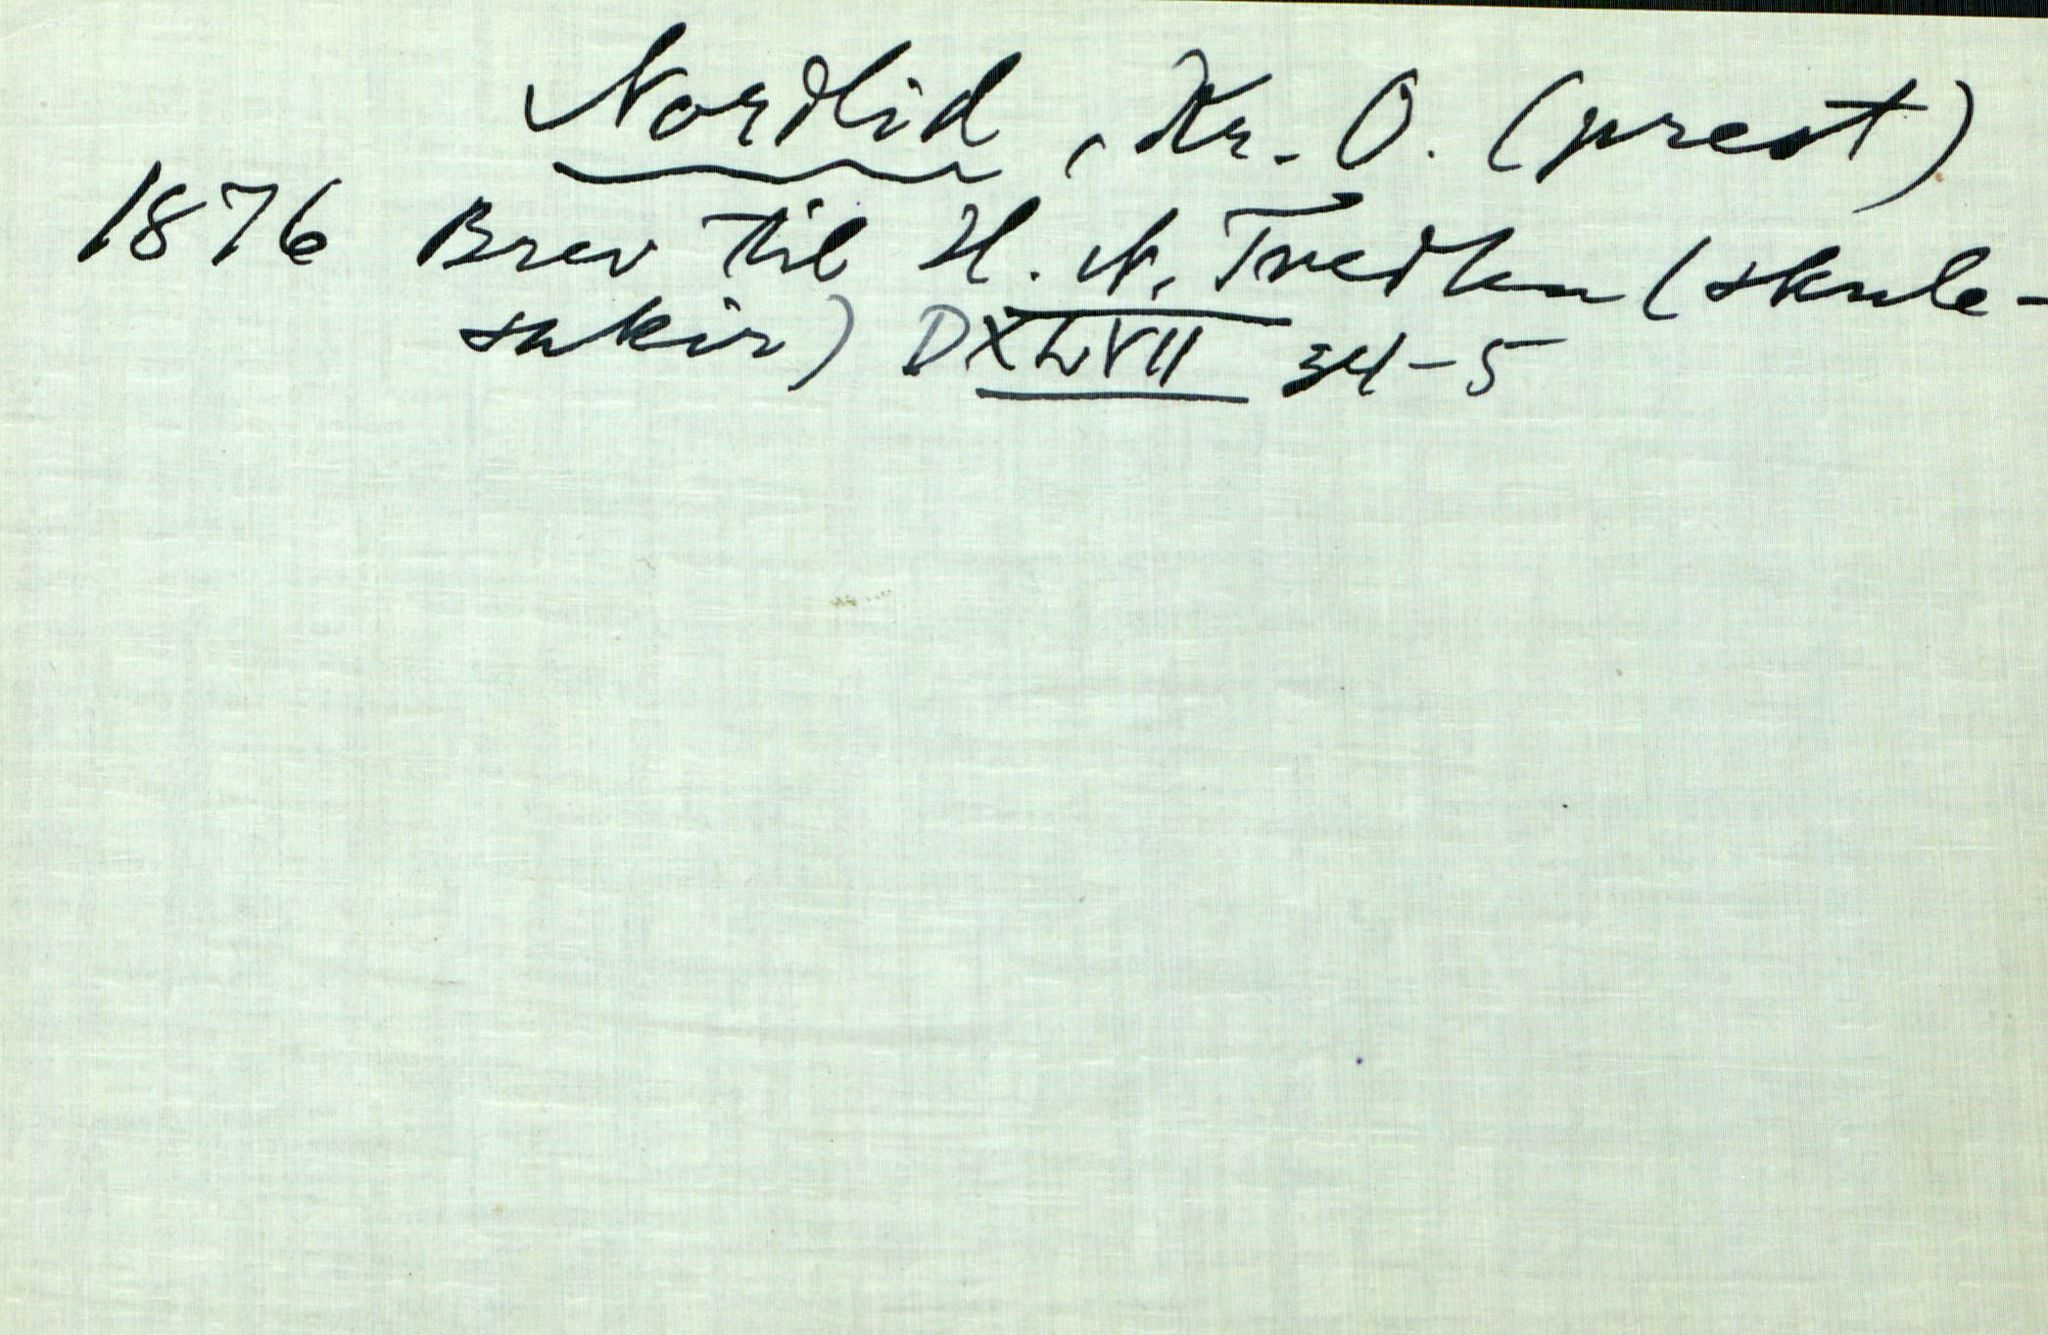 Nordlid, Kr. O. (prest)
1876 Brev til H. N. Tvedten (skule-
sakir) DXLVII 34-5